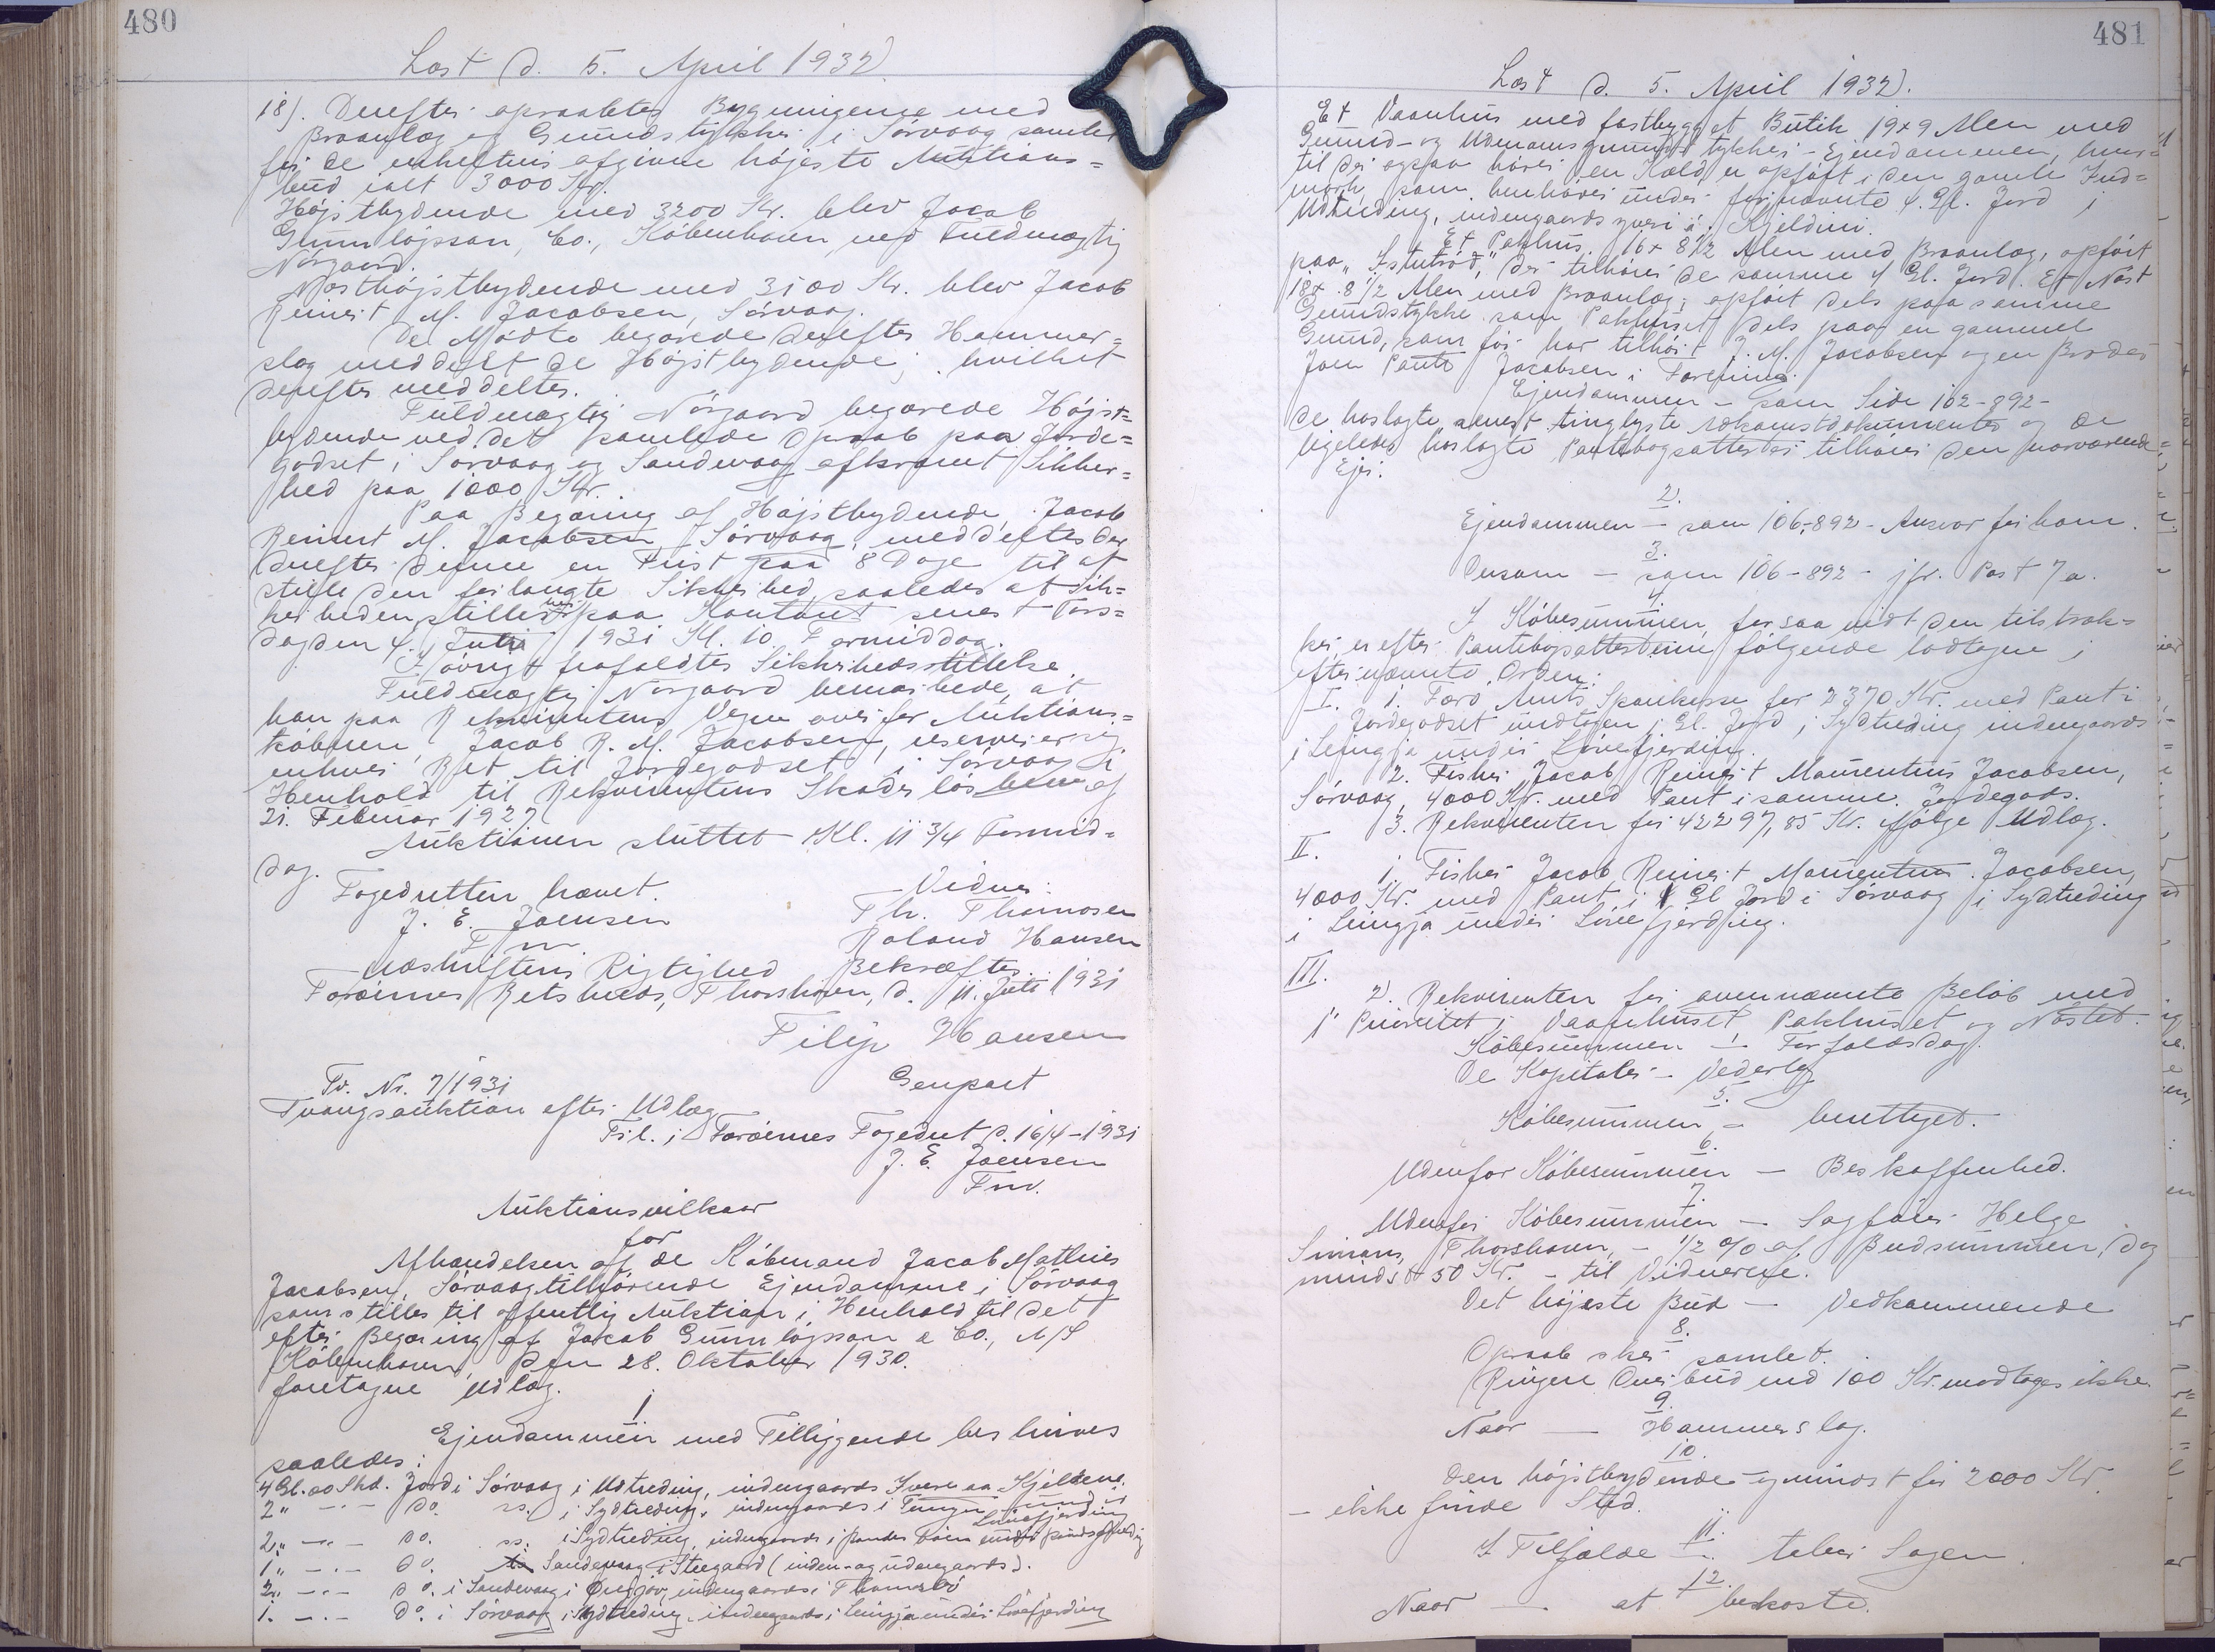 480
Læst d. 5. April 1932.
18). Derefter opraabtes Bygningerne med
Braanlæg og Grundstykker i Sörvaag samlet
for de enkeltvis afgivne højeste Auktions=
bud ialt 3000 Kr.
Højstbydende med 3200 Kr. blev Jacob
Gunnløjsson, Co., København ved Fuldmægtig
Nörgaard.
Næsthøjstbydende med 3100 Kr. blev Jacob
Reinert M. Jacobsen, Sörvaag.
De Mødte begærede derefter Hammer=
slag meddelt de Højstbydende, hvilket
derefter meddeltes.
Fuldmægtig Nörgaard begærede Højst=
bydende ved det samlede Opraab paa Jorde=
godset i Sörvaag og Sandevaag afkrævet Sikker=
hed paa 1000 Kr.
Paa Begæring af Højstbydende Jacob
Reinert M. Jacobsen, Sörvaag, meddeltes der
derefter denne en Frist paa 8 Dage til at
stille den forlangte Sikkerhed, saaledes at Sik=
kerheden stilles her paa Kontoret senest Tors=
dag den 4. Juni 1931 Kl. 10 Formiddag.
I övrigt frafaldtes Sikkerhedsstillelse.
Fuldmægtig Nörgaard bemærkede, at
han paa Rekvirentens Vegne overfor Auktions=
köberen Jacob R. M. Jacobsen, reserverer sig
enhver Ret til Jordegodset i Sörvaag i
Henhold til Rekvirentens Skadeslösbrev af
21. Februar 1927.
Auktionen sluttet Kl. 11 3/4 Formid=
dag.
Fogedretten hævet.
J. E. Joensen
Fm
Vidner:
Th. Thomasen
Roland Hansen
Udskriftens Rigtighed Bekræftes.
Færöernes Retskreds, Thorshavn, d. 11. Juli 1931
Filip Hansen
Tv. Nr. 7/1931
Genpart
Tvangsauktion efter Udlæg
Fril. i Færöernes Fogedret d. 16/4-1931
J. E. Joensen
Fm.
Auktionsvilkaar
for
Afhændelsen af de Købmand Jacob Mathias
Jacobsen, Sörvaag tilhørende Ejendomme i Sörvaag
som stilles til offentlig Auktion i Henhold til det
efter Begæring af Jacob Gunnløjsson & Co., A/S
København, den 28. Oktober 1930.
foretagne Udlæg.
1
Ejendommen med Tilliggende beskrives
saaledes:
4 Gl. 00 Skd. Jord i Sörvaag i Udtreding, indengaards
2 " - " - do. ss. i Sydtreding, indengaards i
2 " - " - do. ss. i Sydtreding, indengaards i
1 " - " - do. Sandevaag i Steegaard (inden- og udengaards).
2 " - " - do. i Sandevaag i indengaards i
1. - " - do. i Sörvaag i Sydtreding, indengaards i Leingja under Lönefjerding
481
Læst d. 5. April 1932.
Et Vaanhus med fastbygget Butik 19x9 Alen med
Grund- og Udmarksgrundstykker - Ejendommen, hvor=
til der ogsaa hører en Kæld, er opført i den gamle Ind=
mark, som henhører under fornævnte 4 Gl. Jord i
Udtreding, indengaards yveri á Kjeldini.
Et Pakhus 16 x 8 1/2 Alen med Braanlæg, opført
paa " der tilhører de samme 4 Gl. Jord. Et Nøst
18 x 8 1/2 Alen med Braanlæg, opført dels paa samme
Grundstykke som Pakhuset, dels paa en gammel
Grund, som før har tilhört J. M. Jacobsen og en Broder
Joen Pauli Jacobsen i Forening.
Ejendommen - som Side 102-892-
de hoslagte senest tinglyste Adkomstdokumenter og de
ligeledes hoslagte Pantebogsattester tilhører den nærværende
Ejer.
2.
Ejendommen - som 106-892 - Ansvar for ham.
3.
Dersom - som 106-892 - jfr. Post 7a.
4.
I Købesummen, forsaavidt den tilstræk=
ker, er efter Pantebogsattesterne følgende lodtagne i
efternævnte Orden:
I. 1. Færø Amts Sparekasse for 2370 Kr. med Pant i
Jordegodset undtagen 1 Gl. Jord i Sydtreding indengaards
i Leingja under Lönefjerding.
2. Fisker Jacob Reinert Maurentius Jacobsen,
Sörvaag, 4000 Kr. med Pant i samme Jordegods.
3. Rekvirenten for 42297,85 Kr. ifølge Udlæg.
II.
1. Fisker Jacob Reinert Maurentius Jacobsen,
4000 Kr. med Pant i 1 Gl Jord i Sörvaag i Sydtreding
i Leingja under Lönefjerding.
III.
2. Rekvirenten for ovennævnte Beløb med
1' Prioritet i Vaanhuset, Pakhuset og Nøstet.
Købesummen - Forfaldsdag.
De Kapitaler - Vederlag
5.
Købesummen - benyttet.
6.
Udenfor Købesummen - Beskaffenhed.
7.
Udenfor Købesummen - Sagfører Helge
Simans, Thorshavn, - 1/2 % af Budsummen, dog
mindst 50 Kr. - til Vidnerne.
Det højeste Bud - Vedkommende
8.
Opraab sker samlet.
Ringere Overbud end 100 Kr. modtages ikke.
9.
Naar - Hammerslag.
10.
Den højstbydende - og mindst for 2000 Kr.
- ikke finde Sted.
11.
I Tilfælde - taber Sagen.
12.
Naar - at bekoste.